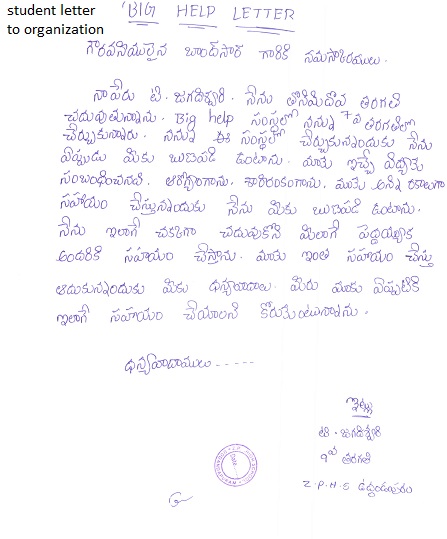 student letter
to organization
BIG HELP LETTER
గౌరవనీయులైన చాంద్‌సార్ గారికి నమస్కారములు.
నా పేరు టి. జగదీశ్వరి. నేను తొమ్మిదివ తరగతి
చదువుతున్నాను. Big help సంస్థలో నన్ను 7వ తరగతిలో
చేర్చుకున్నారు. నన్ను ఈ సంస్థలో చేర్చుకున్నందుకు నేను
ఎప్పుడు మీకు బుణపడి ఉంటాను. మాకు ఇచ్చే విద్యకు
సంబంధించినవి. ఆరోగ్యంగాను, శారీరకంగాను, మాకు అన్ని రకాలుగా
సహాయం చేస్తున్నందుకు నేను మీకు బుణపడి ఉంటాను.
నేను ఇలాగే చక్కగా చదువుకొని మీలాగే పెద్దయ్యాక
అందరికి సహయం చేస్తాను. మాకు ఇంత సహాయం చేస్తు
ఆదుకున్నందుకు మీకు ధన్యవాదాలు. మీరు మాకు ఎప్పటికి
ఇలాగే సహాయం చేయాలని కోరుకుంటున్నాను.
ధన్యవాదాములు-----
ఇట్లు
టి. జగదీశ్వరి
9వ తరగతి
Z.P.H.S ఉద్దండపురం